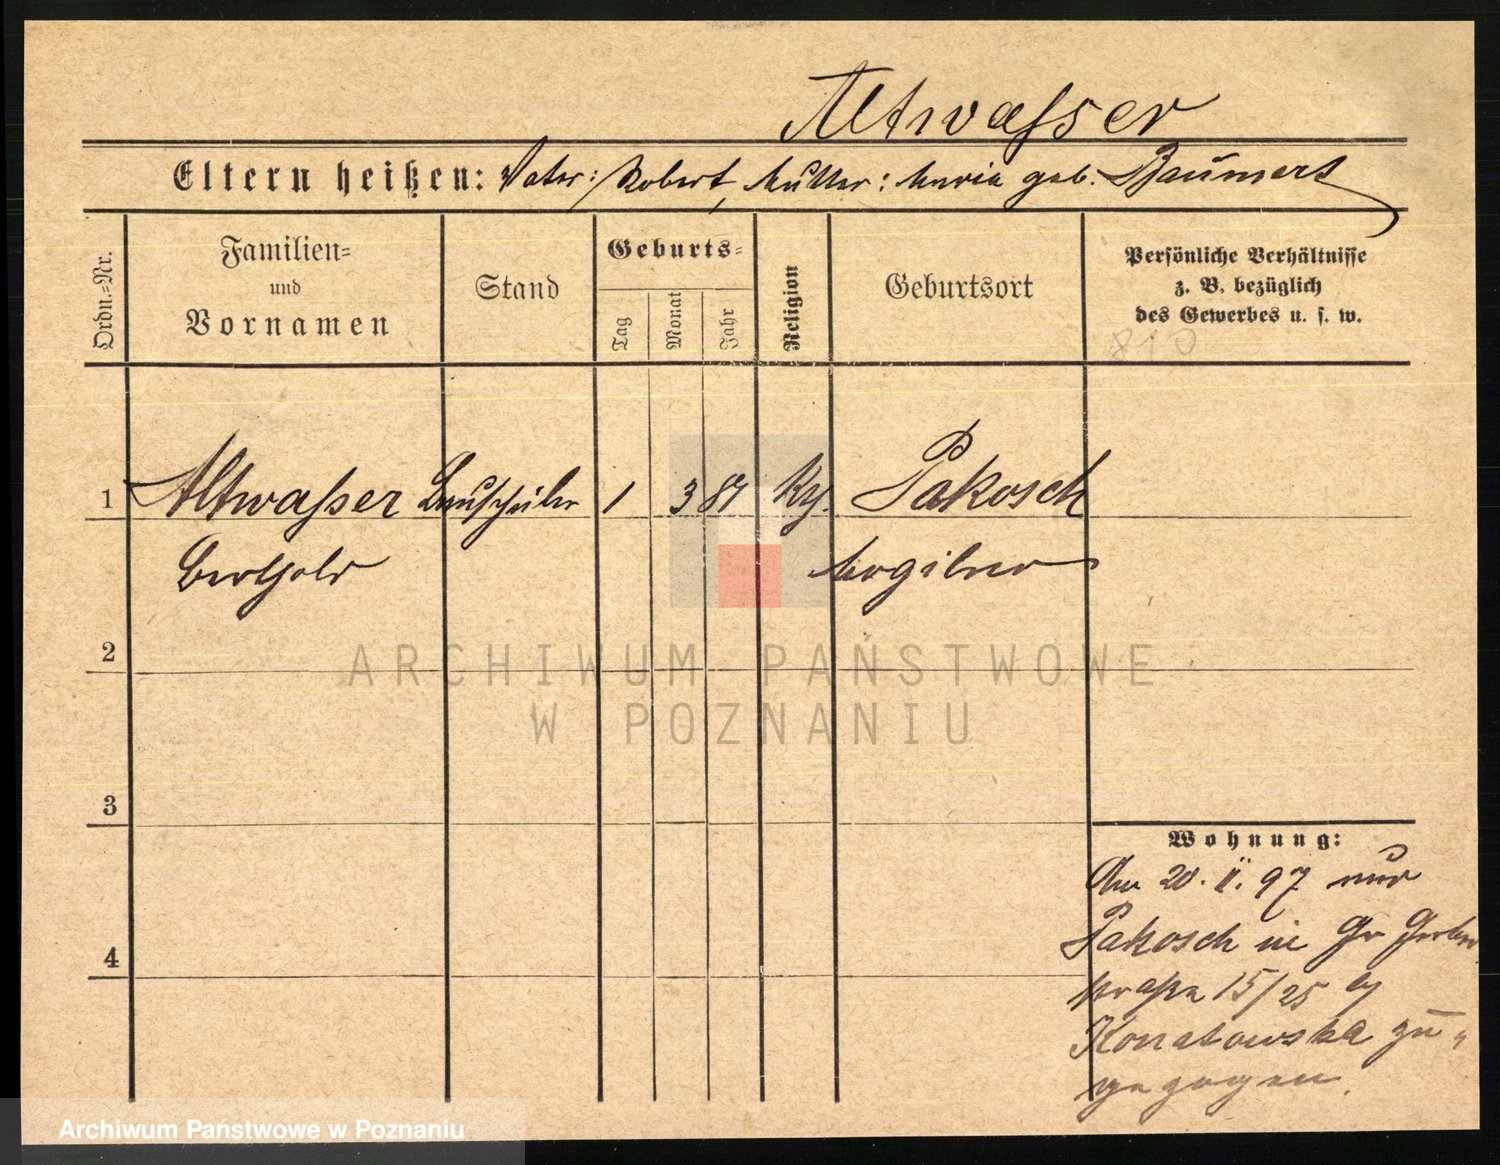 Altwasser
Eltern heißen: Vater: Robert, Mutter: Maria geb. Baumert
Ordn.=Nr.
Familien=
und
Vornamen
Stand
Geburts=
Tag
Monat
Jahr
Religion
Geburtsort
Persönliche Verhältnisse
z. B. bezüglich
des Gewerbes u. s. w.
810
1 Altwasser Bauschüler 1 3 87 Kg. Pakosch
Berthold Mogilno
2
ARCHIWUM PAŃSTWOWE
W POZNANIU
3
Wohnung:
Am 20. II. 97 aus
Pakosch in Gr Gerber
straße 15/25 by
Konatowska zu=
gezogen.
4
Archiwum Państwowe w Poznaniu